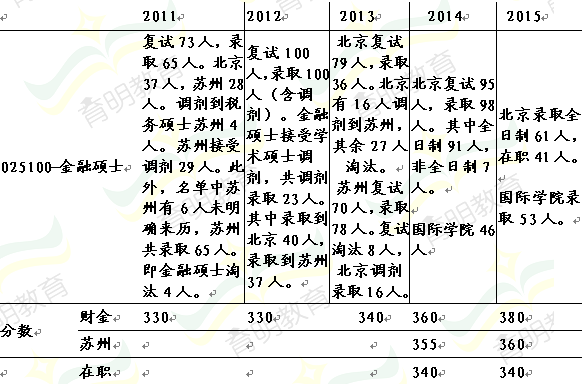 2011 2012 2013 2014 2015
025100-金融硕士
复试 73 人，录
取 65 人。北京
37 人，苏州 28
人。调剂到税
务硕士苏州 4
人。苏州接受
调剂 29 人。此
外，名单中苏
州有 6 人未明
确来历，苏州
共录取 65 人。
即金融硕士淘
汰 4 人。
复试 100
人，录取 100
人（含调
剂）。金融
硕士接受学
术硕士调
剂，共调剂
录取 23 人。
其中录取到
北京 40 人，
录取到苏州
37 人。
北京复试
79 人，录取
36 人。北京
有 16 人调
剂到苏州，
其余 27 人
淘汰。
苏州复试
70 人，录取
78 人。复试
淘汰 8 人，
北京调剂
录取 16 人。
北京复试 95
人，录取 98
人。其中全
日制 91 人，
非全日制 7
人。
国际学院 46
人
北京录取全
日制 61 人，
在职 41 人。
国际学院录
取 53 人。
分数
财金 330 330 340 360 380
苏州 355 360
在职 340 340
育明教育